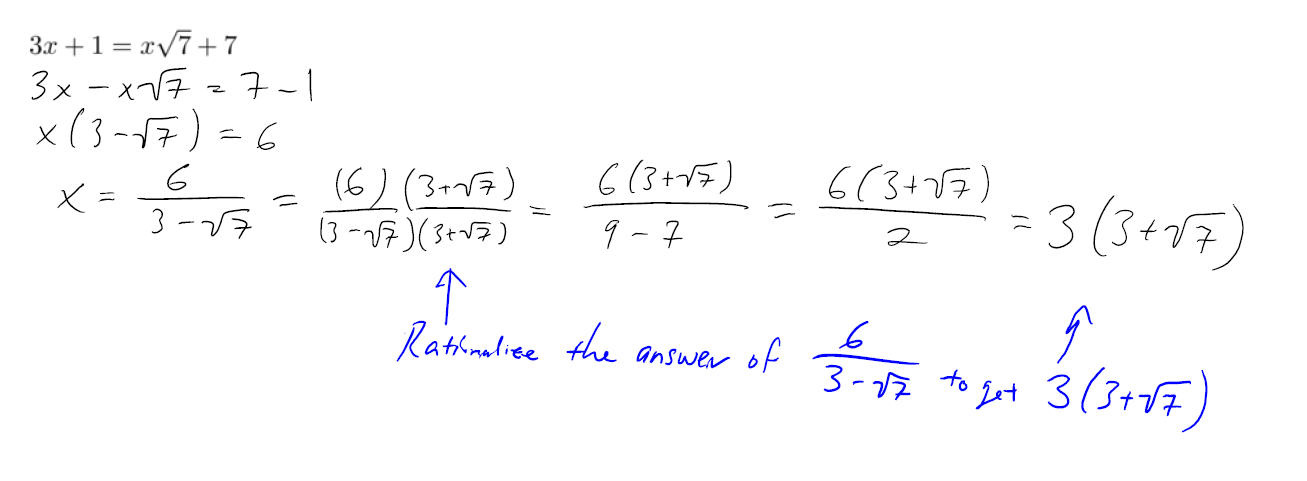 3x + 1 = x√7 + 7
3x - x√7 = 7 - 1
x(3-√7) = 6
x = 6/(3-√7) = (6)(3+√7)/((3-√7)(3+√7)) = 6(3+√7)/(9-7) = 6(3+√7)/2 = 3(3+√7)
↑ ↑
Rationalize the answer of 6/(3-√7) to get 3(3+√7)